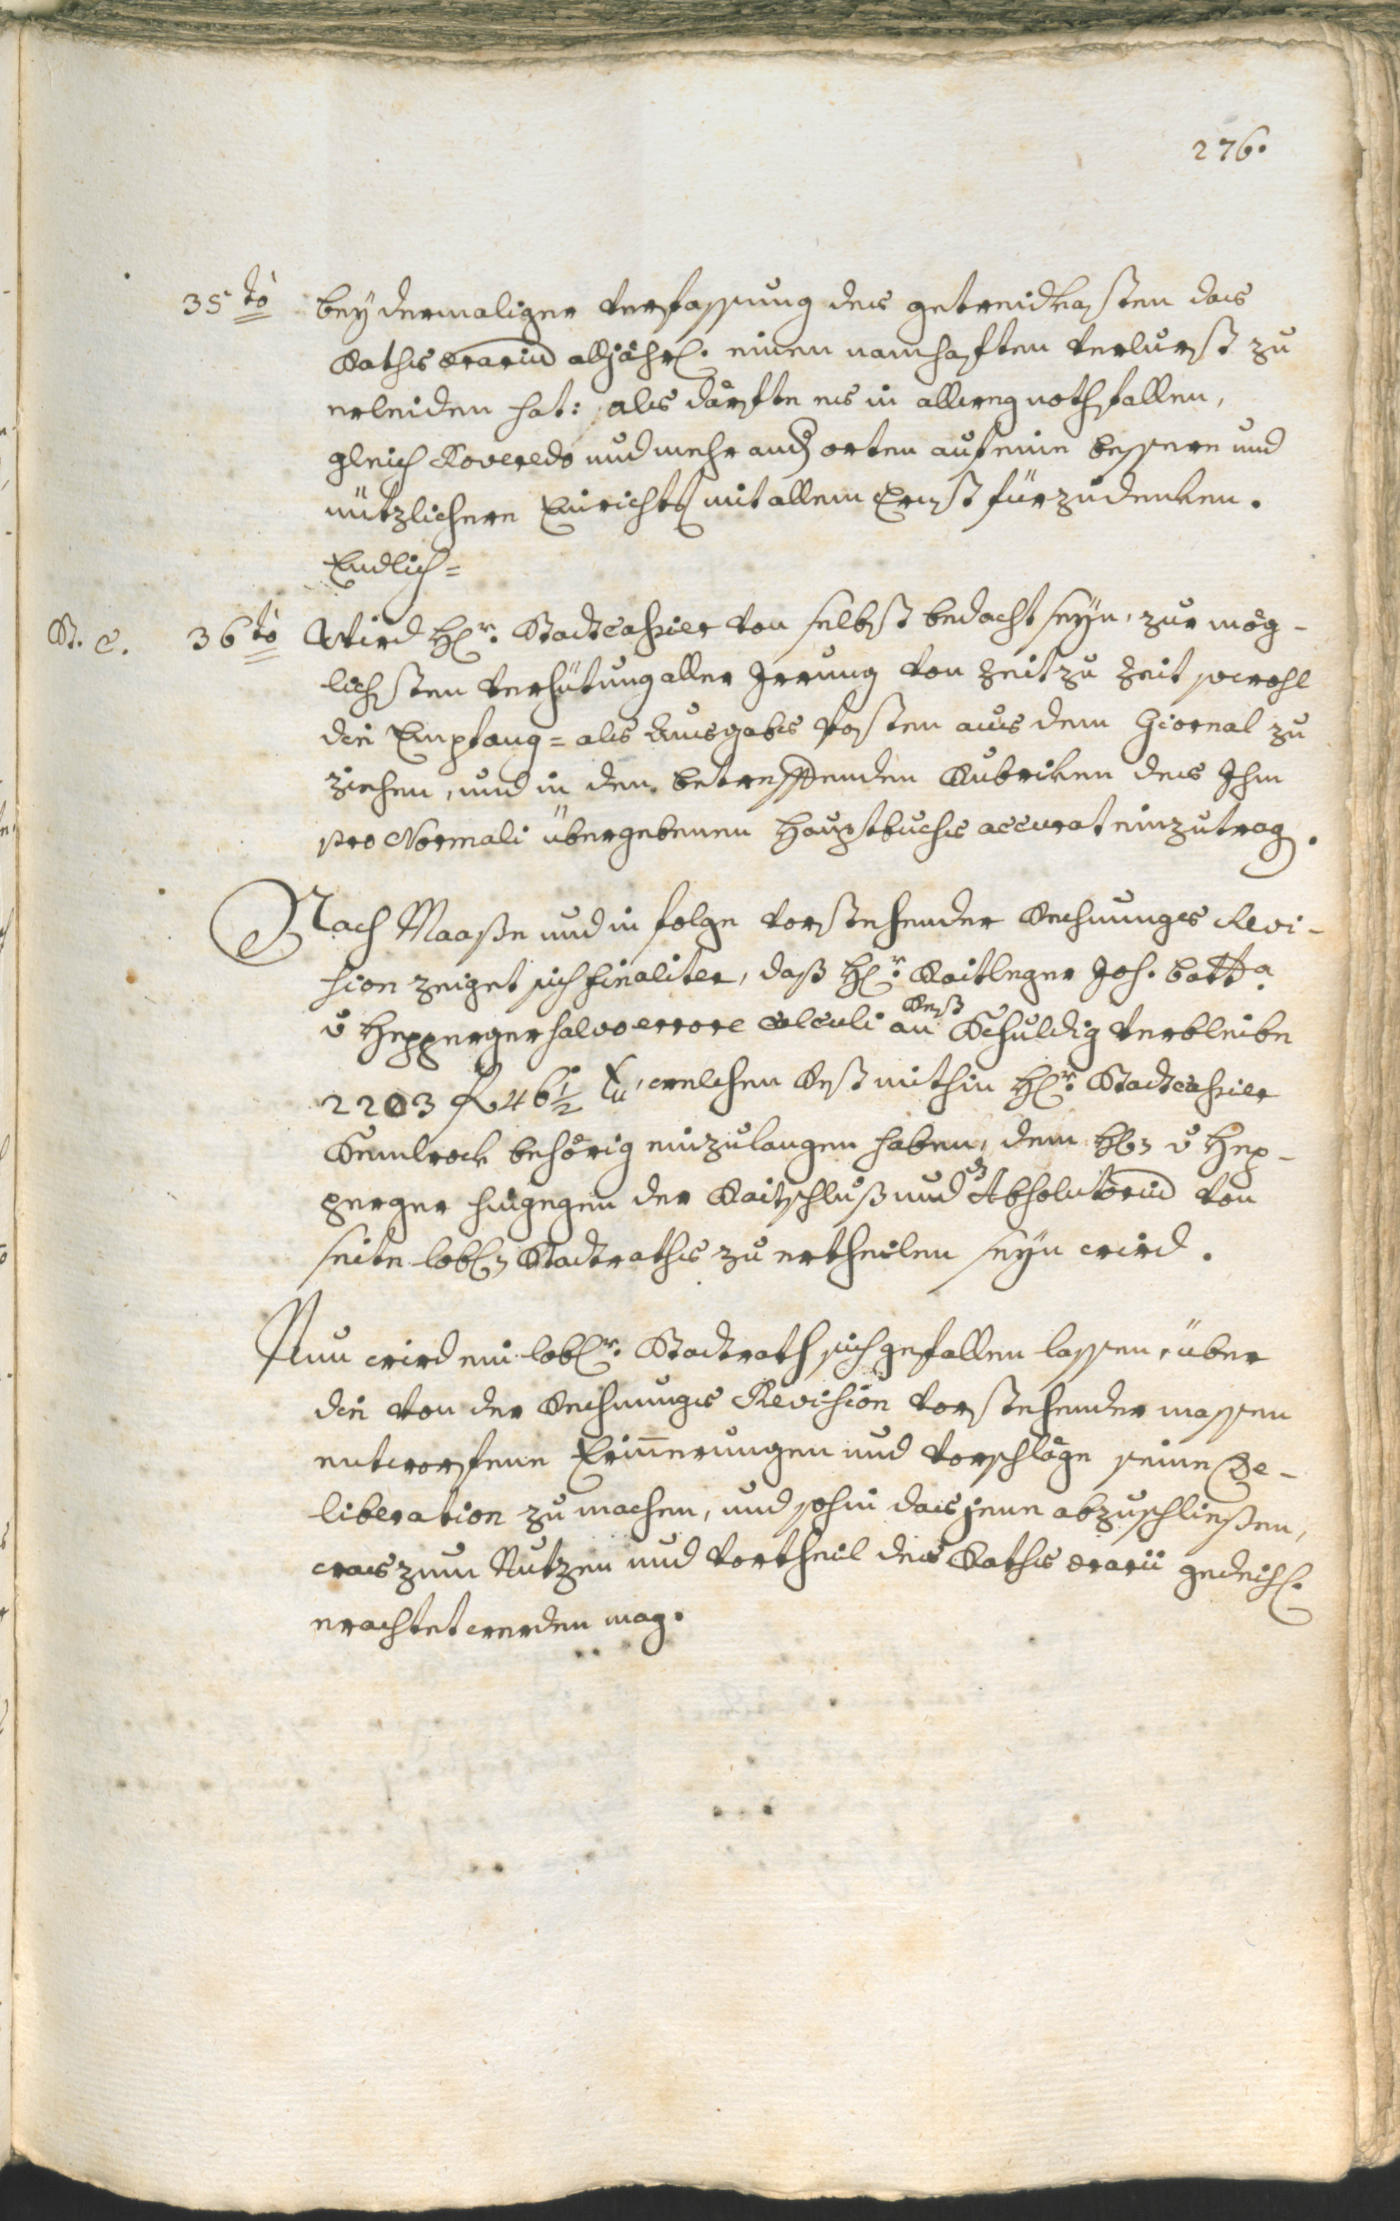 276.
35to bey dermaliger Verfassung des getreidkasten das
Raths ærariũ alljährl. einen namhaften Verlurst zu
erleiden hat: als dårfte es in allweg nothfallen,
gleich Roveredo und mehr andẽ orten auf eine bessere und
nützlichere Einricht. mit allem Ernst fürzudenken.
Endlich=
St. C. 36to Wird Hr. Stadtcassier von selbst bedacht seyn, zur mög-
lichsten Verhütung aller Irrung von Zeit zu Zeit sowohl
die Empfang= als Ausgabs Posten aus dem Giornal zu
ziehen, und in den betreffenden Rubriken des Ihm
pro Normali übergebenen Hauptbuchs accurat einzutragẽ.
Nach Maaße und in folge vorstehender Rechnungs Revi-
sion zeiget sich finaliter, daß Hr. Raitleger Joh. Batta.
v Hepperger salvo errore calculi an Rest Schuldig verbleibe
2203 f 46½ xr, welchen Rest mithin Hr. Stadtcassier
Kemlrock behörig einzulangen haben, dem Hn v Hep-
perger hingegen der Raitschluß und Absolutoriũ von
seite löbln Stadtraths zu ertheilen seyn wird.
Nun wird ein löblr. Stadtrath sich gefallen lassen, über
die von der Rechnungs Revision vorstehender massen
entworfene Erinnerungen und Vorschläge seine De-
liberation zu machen, und sohin das jene abzuschließen,
was zum Nutzen und Vortheil des Raths ærarii gedeihl.
erachtet werden mag.